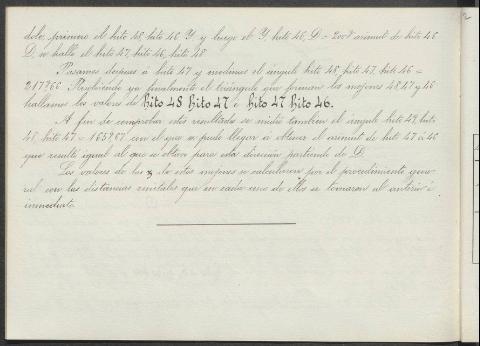 dolo primero el hito 48, hito 46 Y y luego el Y hito 46, D = azimut de hito 46
D se halla el hito 47, hito 46, hito 48
Pasamos despues a hito 47 y medimos el angulo hito 48, hito 47, hito 46 =
217°66'. Resolviendo ya finalmente el triangulo que forman los mojones 48, 47 y 46
hallamos los valores de hito 48 hito 47 é hito 47 hito 46.
A fin de comprobar estos resultados se midió tambien el angulo hito 49, hito
48, hito 47 = con el que se pudo llegar á obtener el azimut de hito 47 á 46
que resultó igual al que se obtuvo para esta direccion partiendo de D.
Los valores de las z de estos mojones se calcularon por el procedimiento gene-
ral con las distancias cenitales que en cada uno de ellos se tomaron al anterior é
inmediato.
2